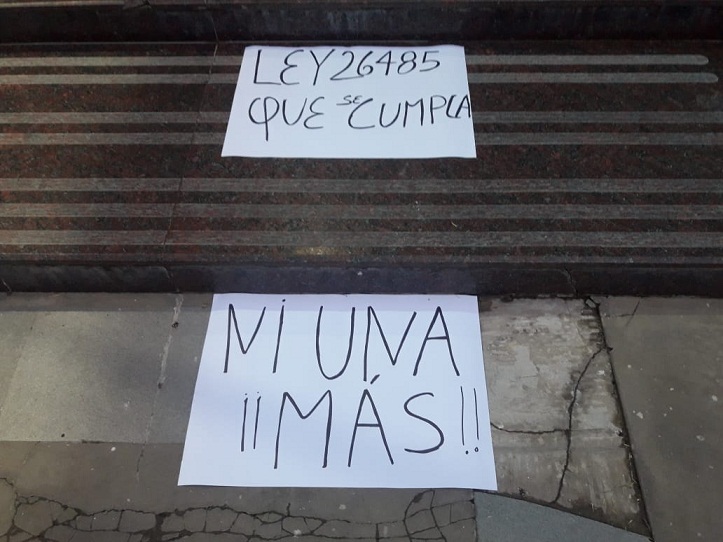 LEY 26485
QUE SE CUMPLA
NI UNA
¡¡MÁS!!